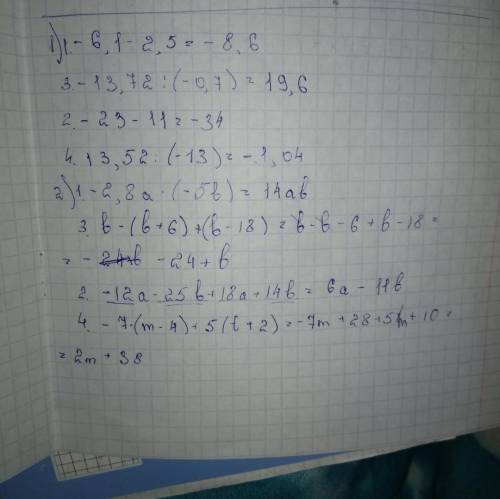 1) 1. - 6,1 - 2,5 = - 8,6
3. - 13,72 : (-0,7) = 19,6
2. - 23 - 11 = -34
4. 13,52 : (-13) = - 1,04
2) 1. - 2,8a · (-5b) = 14ab
3. b - (b + 6) + (b - 18) = b - b - 6 + b - 18 =
= - 24 + b
2. - 12a - 25b + 18a + 14b = 6a - 11b
4. - 7 · (m - 4) + 5 (t + 2) = -7m + 28 + 5m + 10 =
= 2m + 38